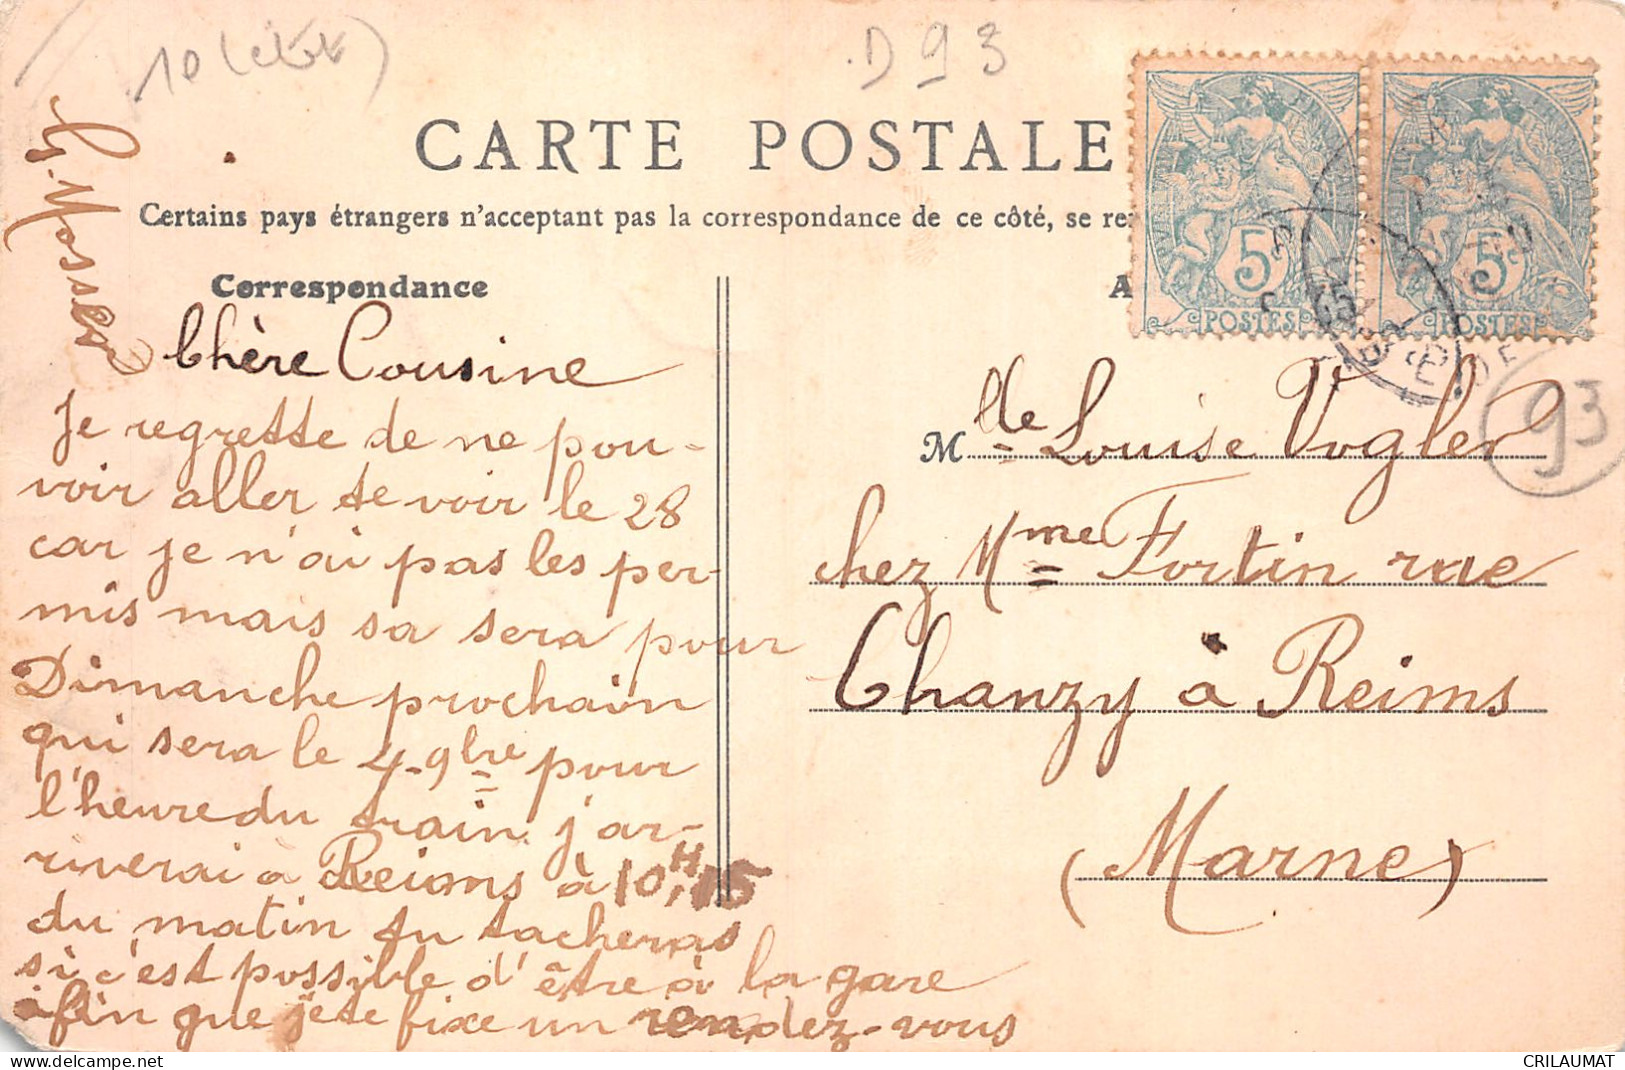 D93
CARTE POSTALE
Certains pays étrangers n'acceptent pas la correspondance de ce côté, se ren
Correspondance
A
5c
POSTES
5c
POSTES
93
Chère Cousine
Je regrette de ne pou-
voir aller te voir le 28
car je n'ai pas les per-
mis mais sa sera pour
Dimanche prochain
qui sera le 4-9bre pour
l'heure du train j'ar-
riverai à Reims à 10H,15
du matin tu tacheras
si c'est possible d'être à la gare
afin que je te fixe un rendez-vous
Mlle Louise Vogler
chez Mme Fortin rue
Chanzy à Reims
(Marne)
CRILAUMAT